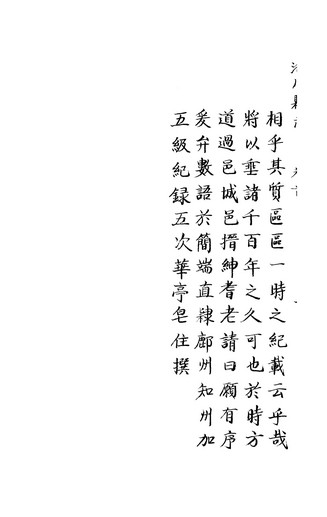 相乎其質區區一時之紀載云乎哉
將以垂諸千百年之久可也於時方
道過邑城邑搢紳耆老請曰願有序
爰弁數語於簡端直隷鄜州知州加
五級紀録五次華亭皂住撰